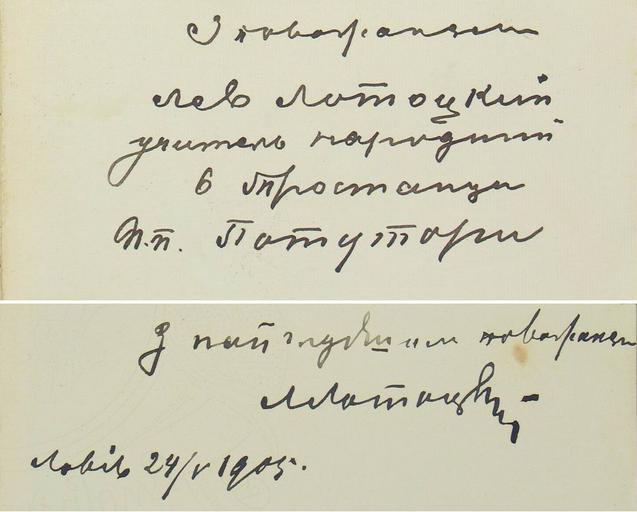 З поважанєм
Лев Лотоцкий
учитель народний
в Тростанци
П.п. Потутори
З найглубшим поважанєм
ЛЛотоцкий
Львів 24/V 1905.